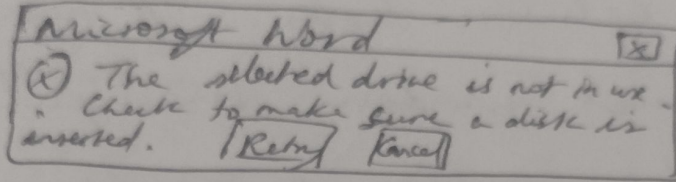 Microsoft Word [X]
(X) The selected drive is not in use.
Check to make sure a disk is
inserted. [Retry] [Cancel]